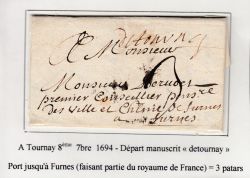 detournay
A Monsieur
Monsieur Bernuet
premier Conseiller pensre
des ville et Chtnie de furnes
a furnes
A Tournay 8ème 7bre 1694 - Départ manuscrit « detournay »
Port jusqu'à Furnes (faisant partie du royaume de France) = 3 patars